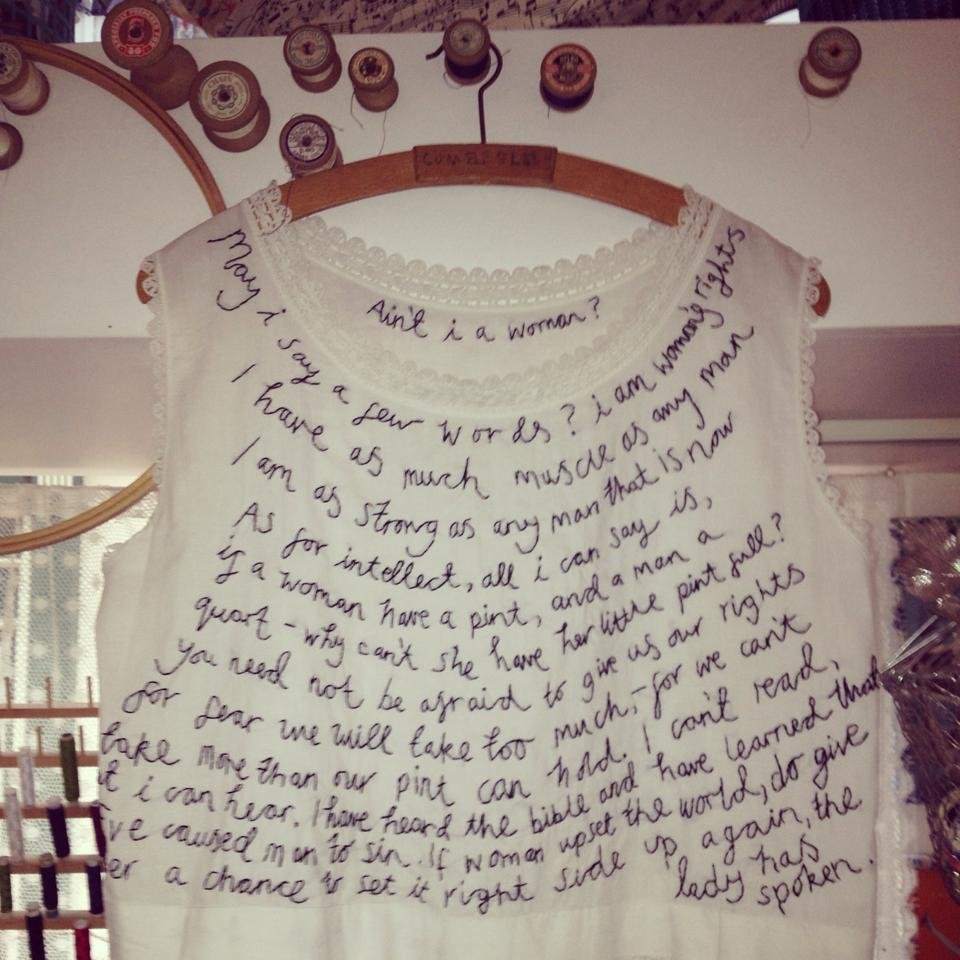 Ain't i a woman?
May i say a few words? i am woman's rights
I have as much muscle as any man
I am as strong as any man that is now
As for intellect, all i can say is,
if a woman have a pint, and a man a
quart - why can't she have her little pint full?
you need not be afraid to give us our rights
for fear we will take too much,- for we can't
take more than our pint can hold. I can't read,
t i can hear. I have heard the bible and have learned that
ve caused man to sin. If woman upset the world, do give
er a chance to set it right side up again, the
lady has
spoken.